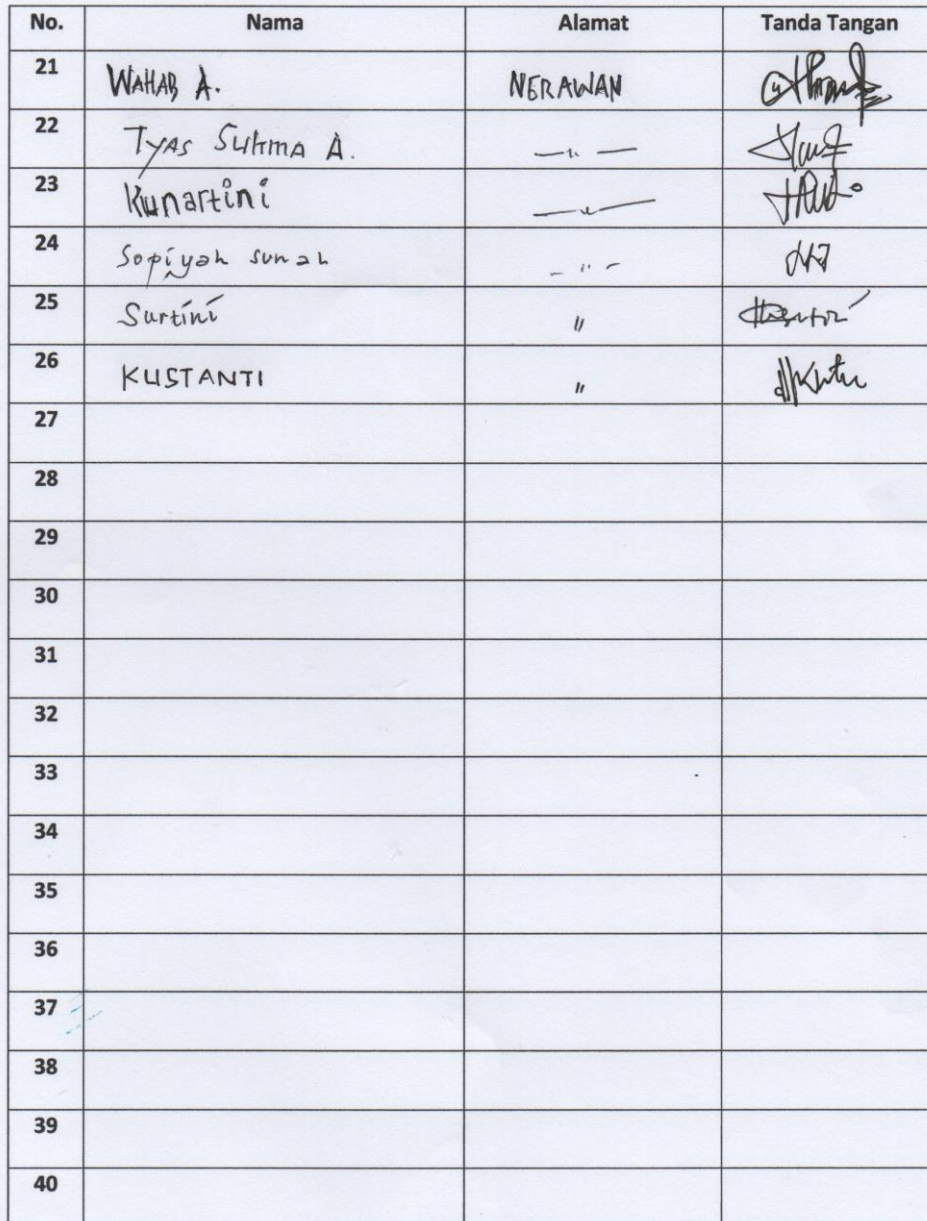 No. Nama Alamat Tanda Tangan
21 WAHAB A. NERAWAN
22 Tyas Sukma A. —〃—
23 Kunartini —〃—
24 Sopiyah sunah - 〃 -
25 Surtini 〃
26 KUSTANTI 〃
27
28
29
30
31
32
33
34
35
36
37
38
39
40